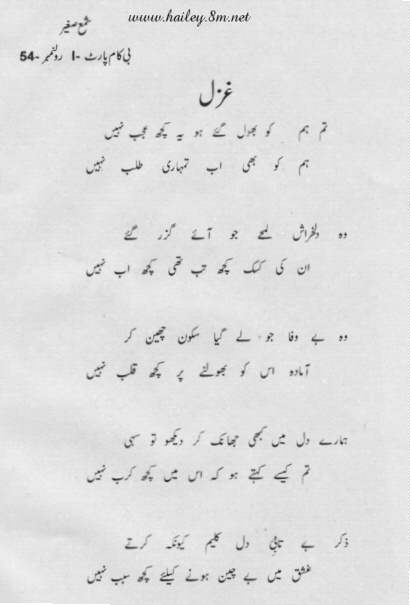 www.hailey.8m.net
شمع صغیر
بی کام پارٹ -I رولنمبر -54
غزل
تم ہم کو بھول گئے ہو یہ کچھ عجب نہیں
ہم کو بھی اب تمہاری طلب نہیں
وہ دلخراش لمحے جو آئے گزر گئے
ان کی کسک کچھ تب تھی کچھ اب نہیں
وہ بے وفا جو لے گیا سکون چھین کر
آمادہ اس کو بھولنے پر کچھ قلب نہیں
ہمارے دل میں کبھی جھانک کر دیکھو تو سہی
تم کیسے کہتے ہو کہ اس میں کچھ کرب نہیں
ذکر بے تابئ دل کلیم کیونکہ کرتے
عشق میں بے چین ہونے کیلئے کچھ سبب نہیں